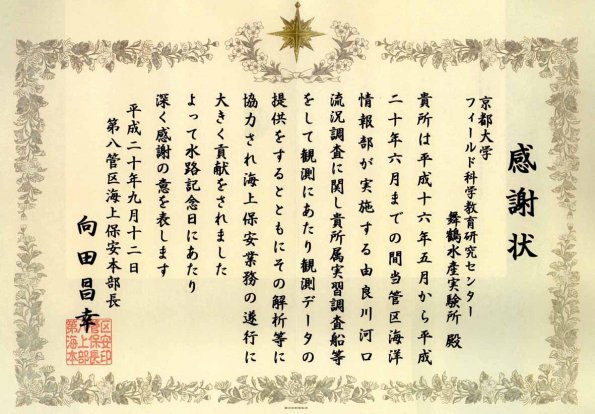 感謝状
京都大学
フィールド科学教育研究センター
舞鶴水産実験所 殿
貴所は平成十六年五月から平成
二十年六月までの間当管区海洋
情報部が実施する由良川河口
流況調査に関し貴所属実習調査船等
をして観測にあたり観測データの
提供をするとともにその解析等に
協力され海上保安業務の遂行に
大きく貢献をされました
よって水路記念日にあたり
深く感謝の意を表します
平成二十年九月十二日
第八管区海上保安本部長
向田昌幸
第八管区
海上保安
本部長印